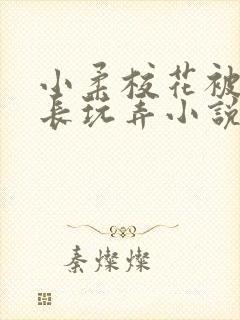 小柔校花被
长玩弄小說
秦燦燦